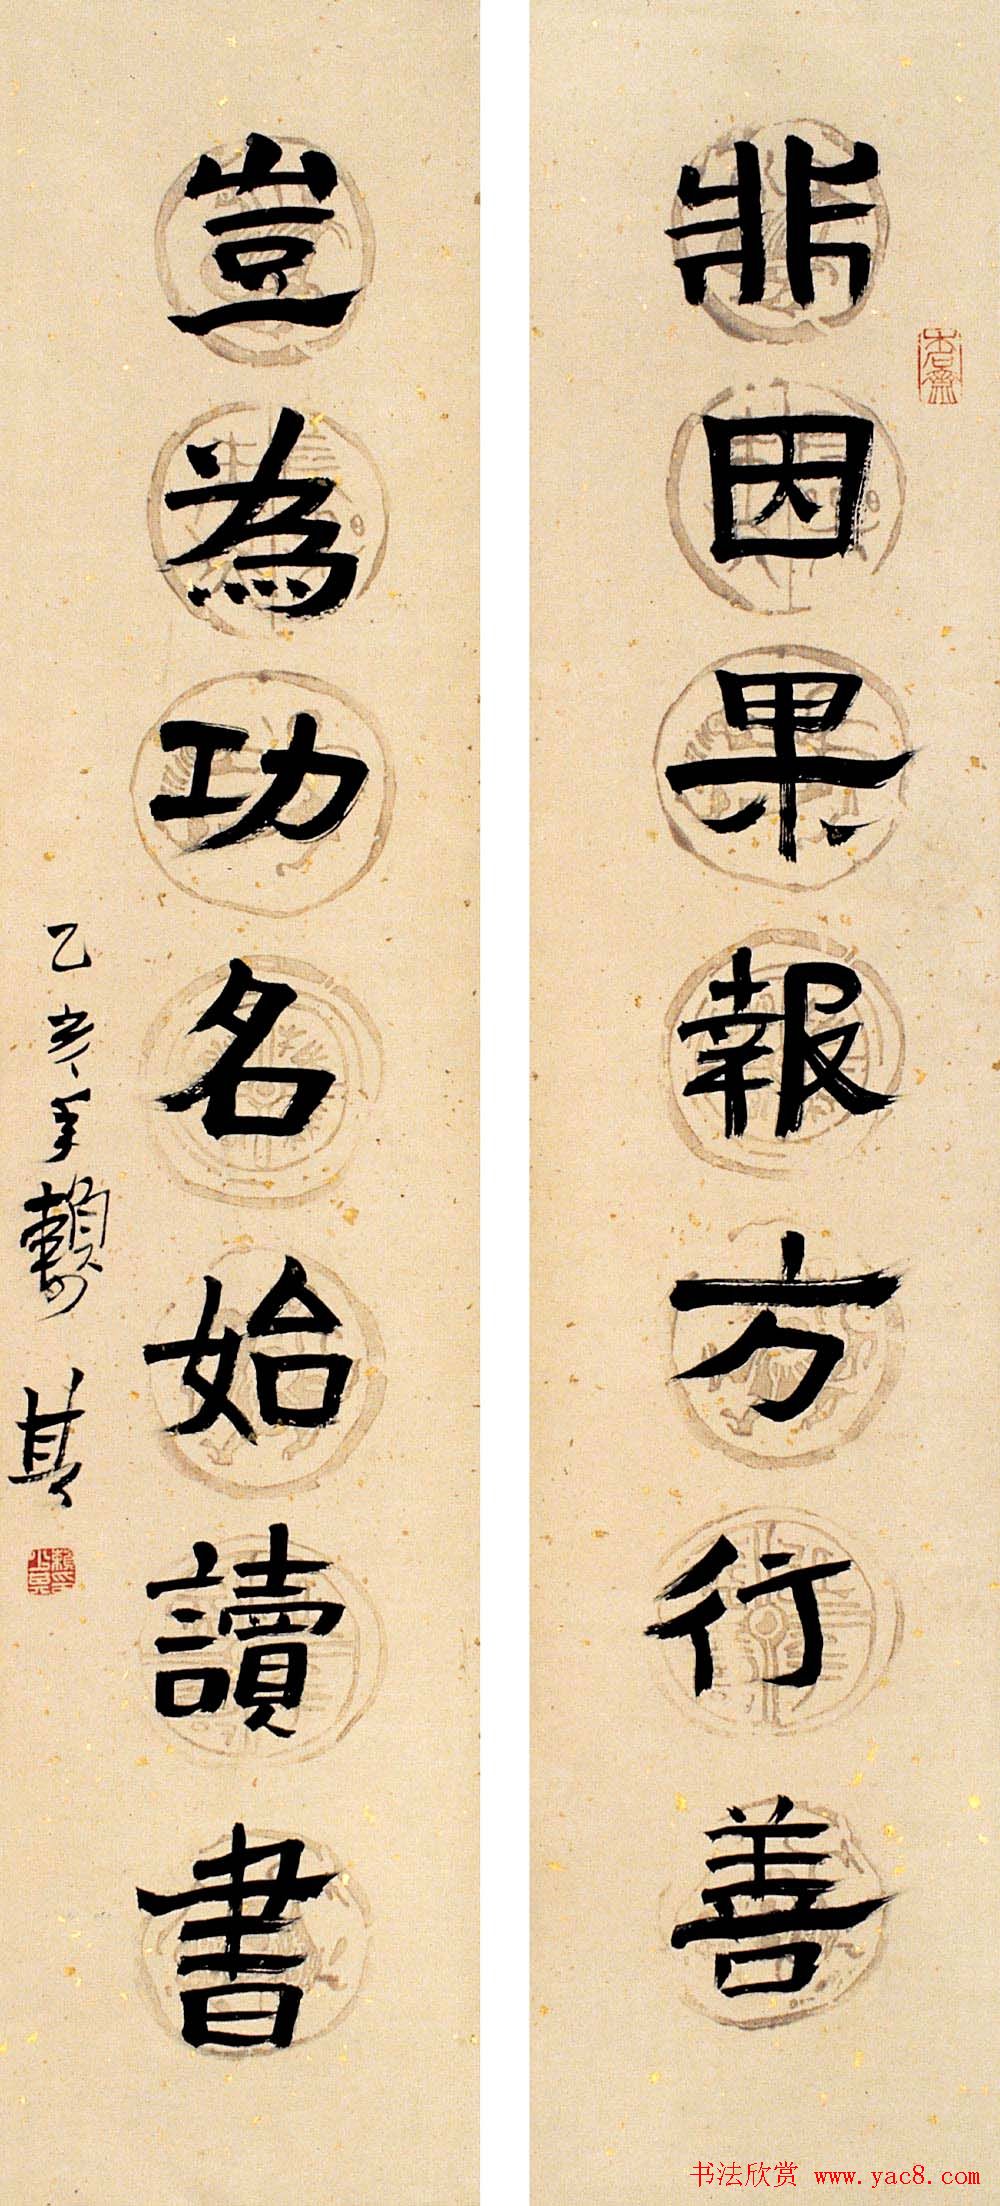 非因果報方行善
豈為功名始讀書
乙亥年賴少其
书法欣赏 www.yac8.com